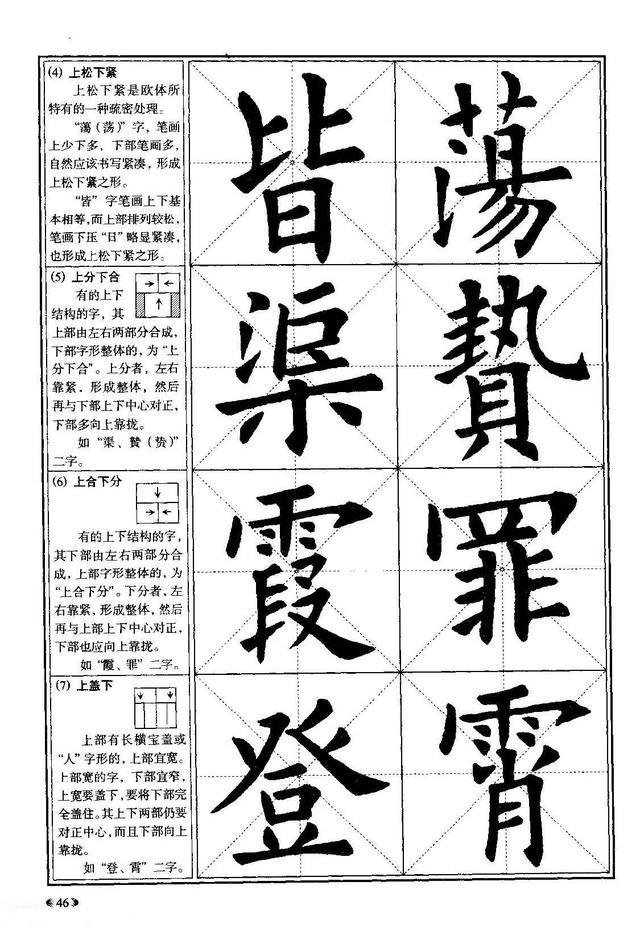 (4) 上松下紧
上松下紧是欧体所
特有的一种疏密处理。
“蕩（荡）”字，笔画
上少下多，下部笔画多，
自然应该书写紧凑，形成
上松下紧之形。
“皆”字笔画上下基
本相等，而上部排列较松，
笔画下压“日”略显紧凑，
也形成上松下紧之形。
皆 蕩
(5) 上分下合
有的上下
结构的字，其
上部由左右两部分合成，
下部字形整体的，为“上
分下合”。上分者，左右
靠紧，形成整体，然后
再与下部上下中心对正，
下部多向上靠拢。
如“渠、贄（贽）”
二字。
渠 贄
(6) 上合下分
有的上下结构的字，
其下部由左右两部分合
成，上部字形整体的，为
“上合下分”。下分者，左
右靠紧，形成整体，然后
再与上部上下中心对正，
下部也应向上靠拢。
如“霞、罪”二字。
霞 罪
(7) 上盖下
上部有长横宝盖或
“人”字形的，上部宜宽。
上部宽的字，下部宜窄，
上宽要盖下，要将下部完
全盖住。其上下两部仍要
对正中心，而且下部向上
靠拢。
如“登、霄”二字。
登 霄
46